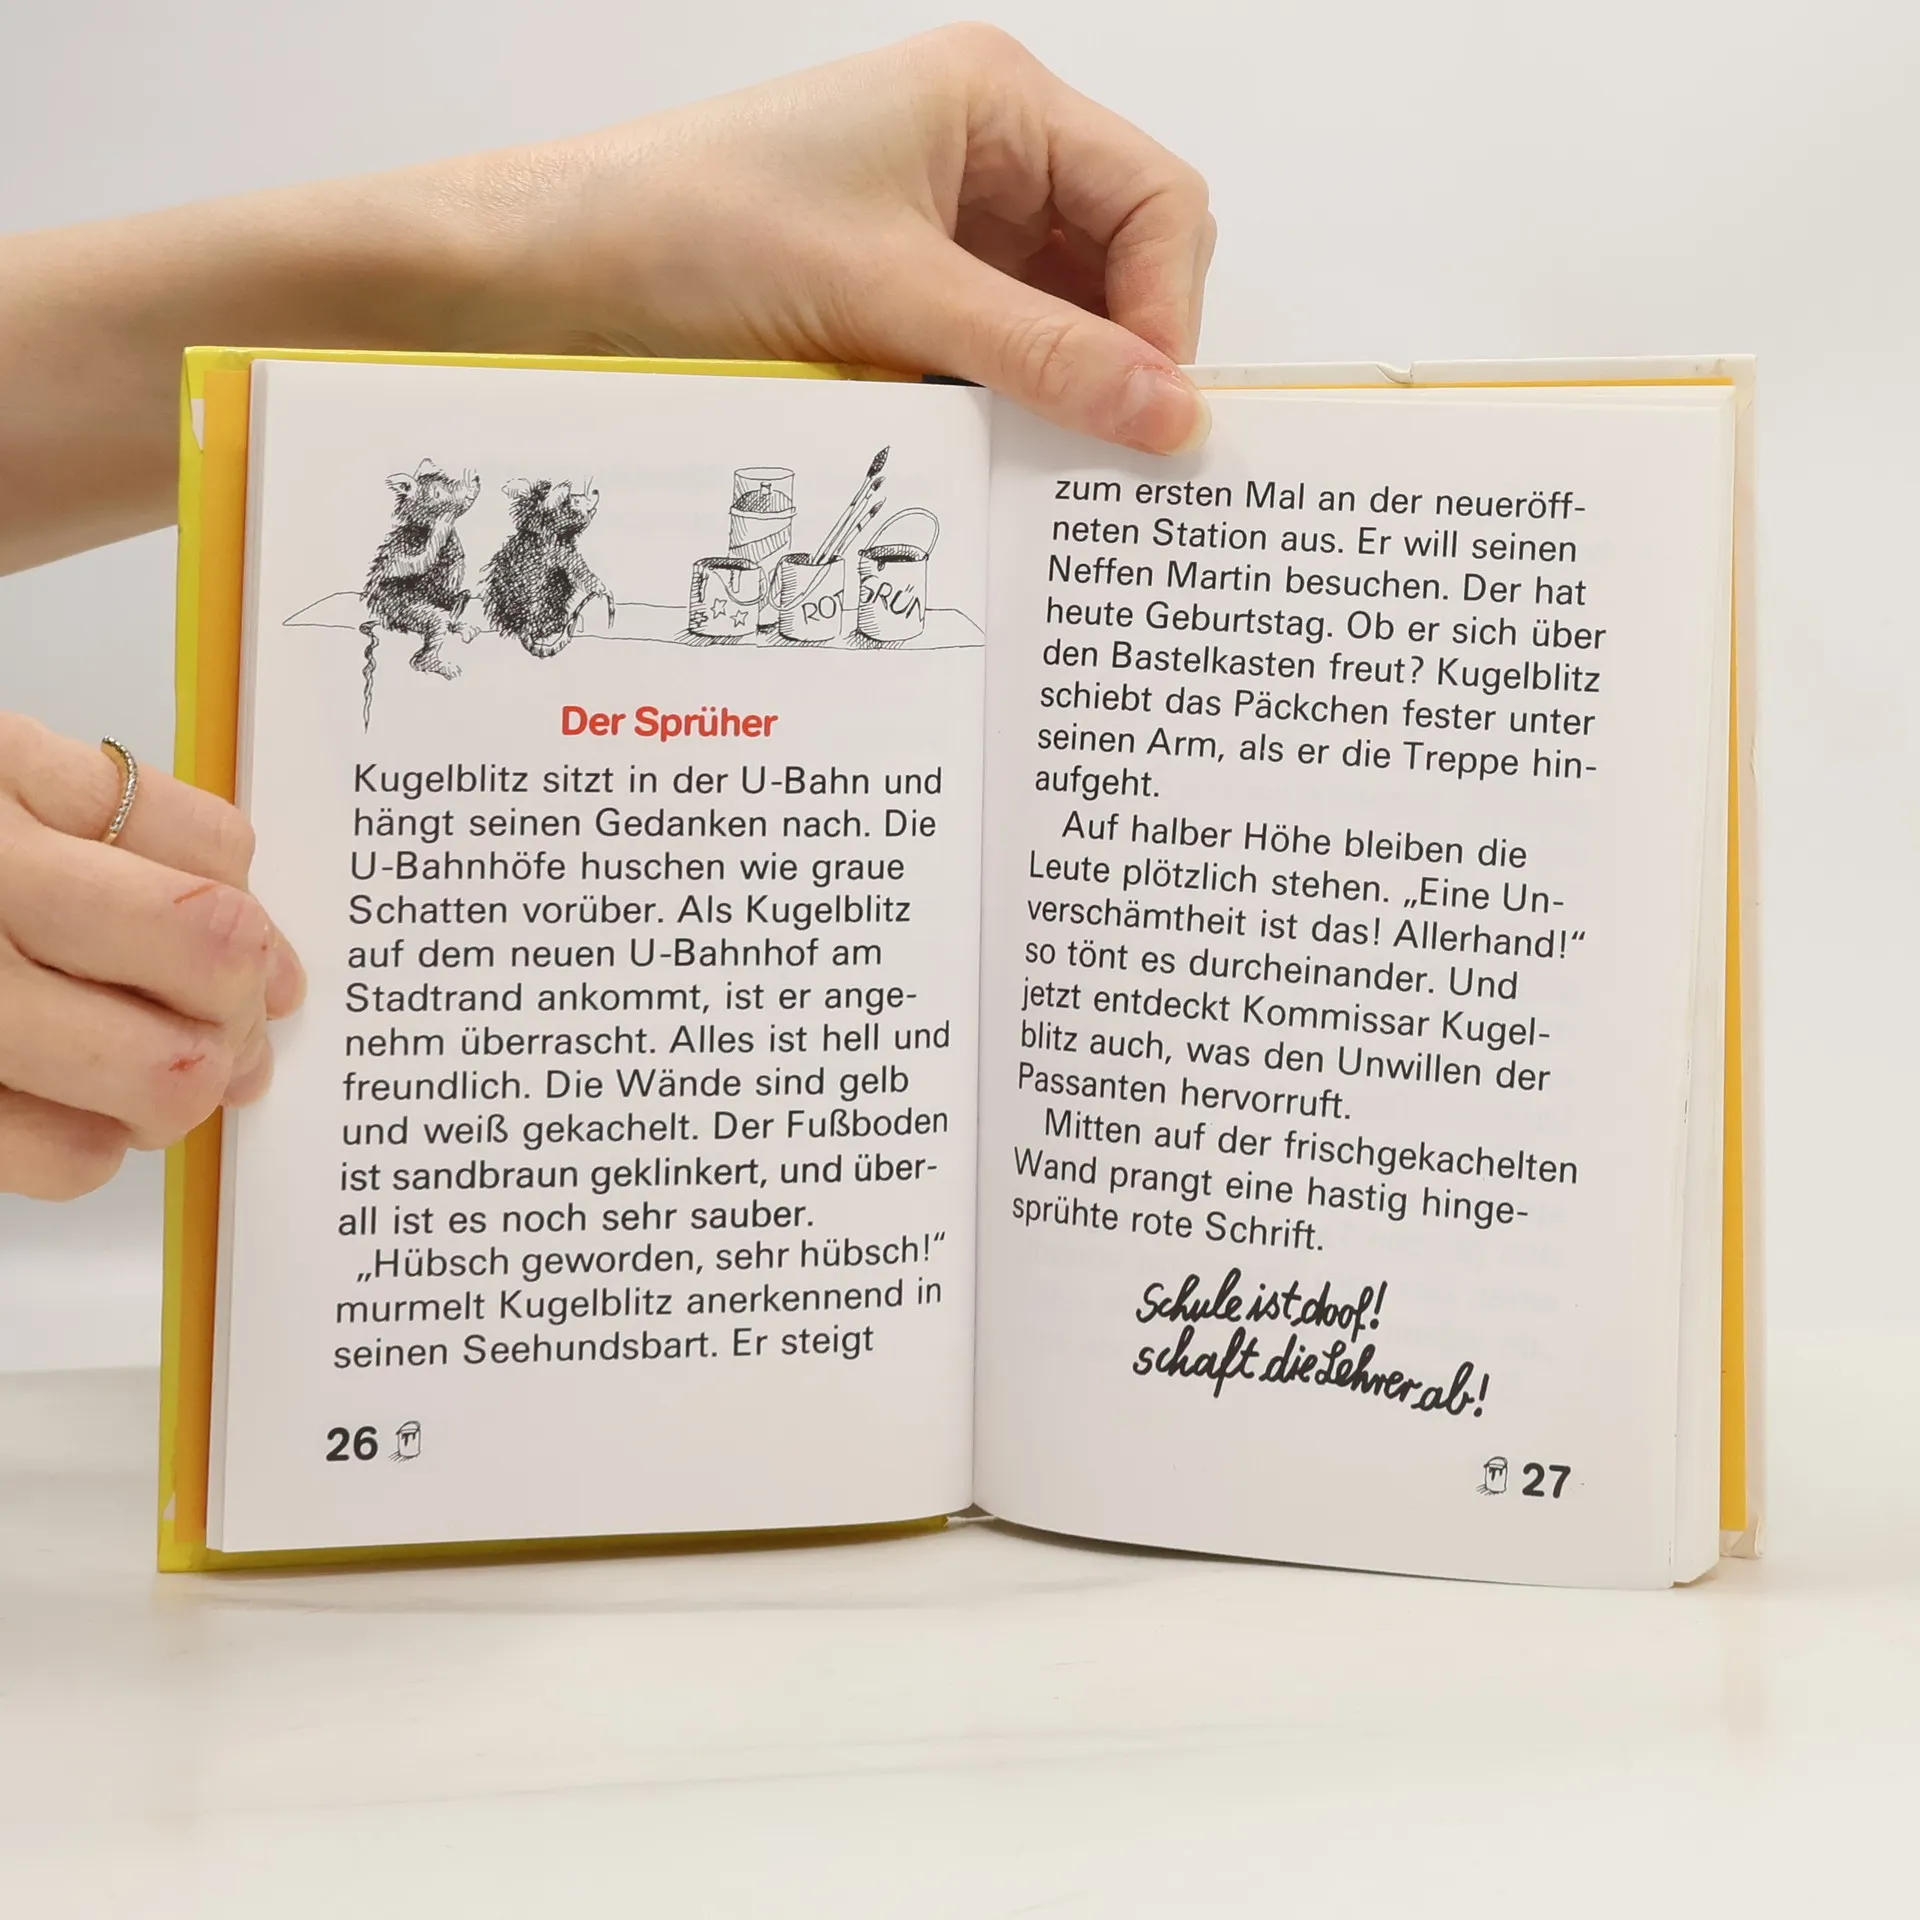 ROT
GRÜN
Der Sprüher
Kugelblitz sitzt in der U-Bahn und
hängt seinen Gedanken nach. Die
U-Bahnhöfe huschen wie graue
Schatten vorüber. Als Kugelblitz
auf dem neuen U-Bahnhof am
Stadtrand ankommt, ist er ange-
nehm überrascht. Alles ist hell und
freundlich. Die Wände sind gelb
und weiß gekachelt. Der Fußboden
ist sandbraun geklinkert, und über-
all ist es noch sehr sauber.
„Hübsch geworden, sehr hübsch!“
murmelt Kugelblitz anerkennend in
seinen Seehundsbart. Er steigt
26
zum ersten Mal an der neueröff-
neten Station aus. Er will seinen
Neffen Martin besuchen. Der hat
heute Geburtstag. Ob er sich über
den Bastelkasten freut? Kugelblitz
schiebt das Päckchen fester unter
seinen Arm, als er die Treppe hin-
aufgeht.
Auf halber Höhe bleiben die
Leute plötzlich stehen. „Eine Un-
verschämtheit ist das! Allerhand!“
so tönt es durcheinander. Und
jetzt entdeckt Kommissar Kugel-
blitz auch, was den Unwillen der
Passanten hervorruft.
Mitten auf der frischgekachelten
Wand prangt eine hastig hinge-
sprühte rote Schrift.
Schule ist doof!
schaft die Lehrer ab!
27